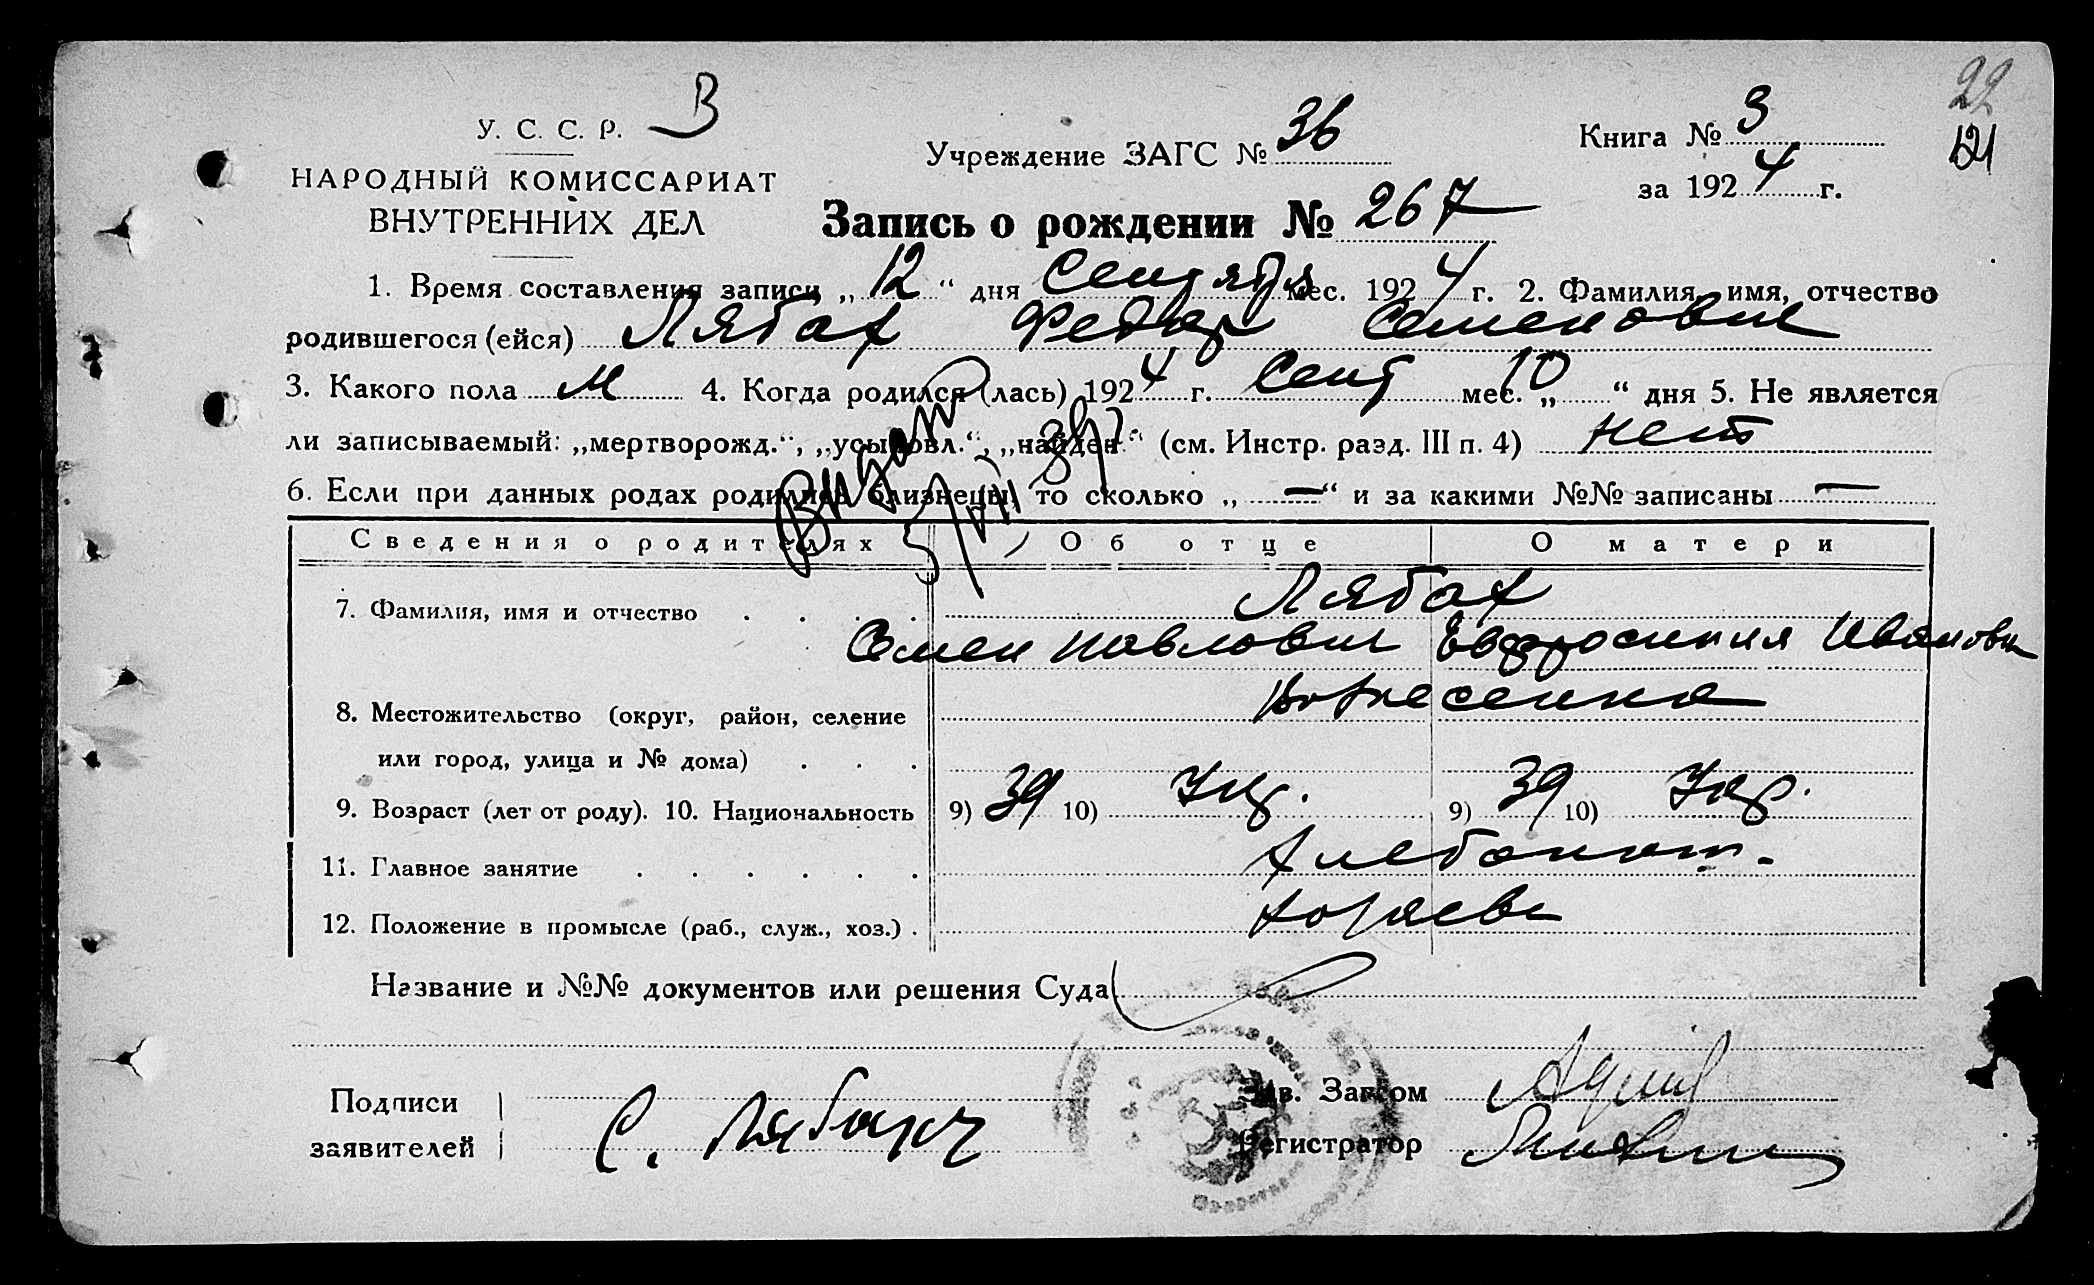 22
В
У. С. С. Р.
Учреждение ЗАГС № 36
Книга № 3
121
НАРОДНЫЙ КОМИССАРИАТ
за 1924 г.
ВНУТРЕННИХ ДЕЛ
Запись о рождении № 267
1. Время составления записи „12“ дня Сентября мес. 1924 г. 2. Фамилия, имя, отчество
родившегося (ейся) Лябах Федор Семенович
3. Какого пола м 4. Когда родился (лась) 1924 г. Сент мес. „10“ дня 5. Не является
ли записываемый: „мертворожд.“, „усыновл.“, „найден“ (см. Инстр. разд. III п. 4) нет
6. Если при данных родах родились близнецы, то сколько „—“ и за какими №№ записаны —
Выдан
Сведения о родителях Об отце О матери
7. Фамилия, имя и отчество Лябах
Семен Павлович Евфросиния Ивановн
8. Местожительство (округ, район, селение Вознесенка
или город, улица и № дома)
9. Возраст (лет от роду). 10. Национальность 9) 39 10) Укр. 9) 39 10) Укр.
11. Главное занятие Хлебопаш.
12. Положение в промысле (раб., служ., хоз.) хозяева
Название и №№ документов или решения Суда
Подписи
Зав. Загсом
заявителей С. Лябах
Регистратор